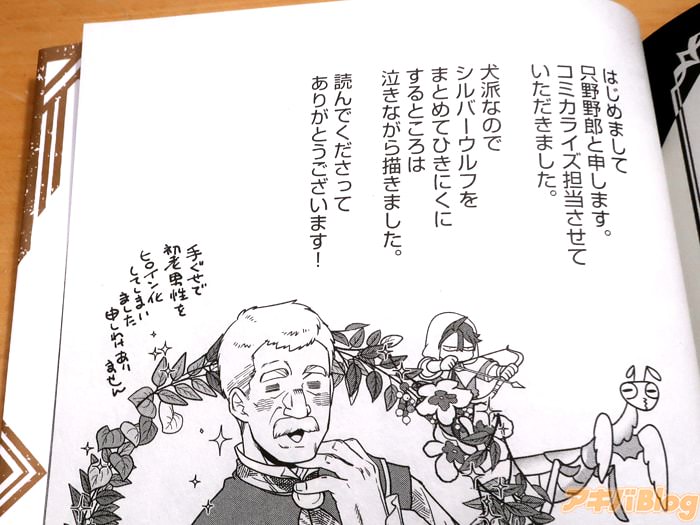 はじめまして
只野野郎と申します。
コミカライズ担当させて
いただきました。
犬派なので
シルバーウルフを
まとめてひきにくに
するところは
泣きながら描きました。
読んでくださって
ありがとうございます！
手ぐせで
初老男性を
ヒロイン化
してしまい
ました
申しわけあり
ません
アキバBlog